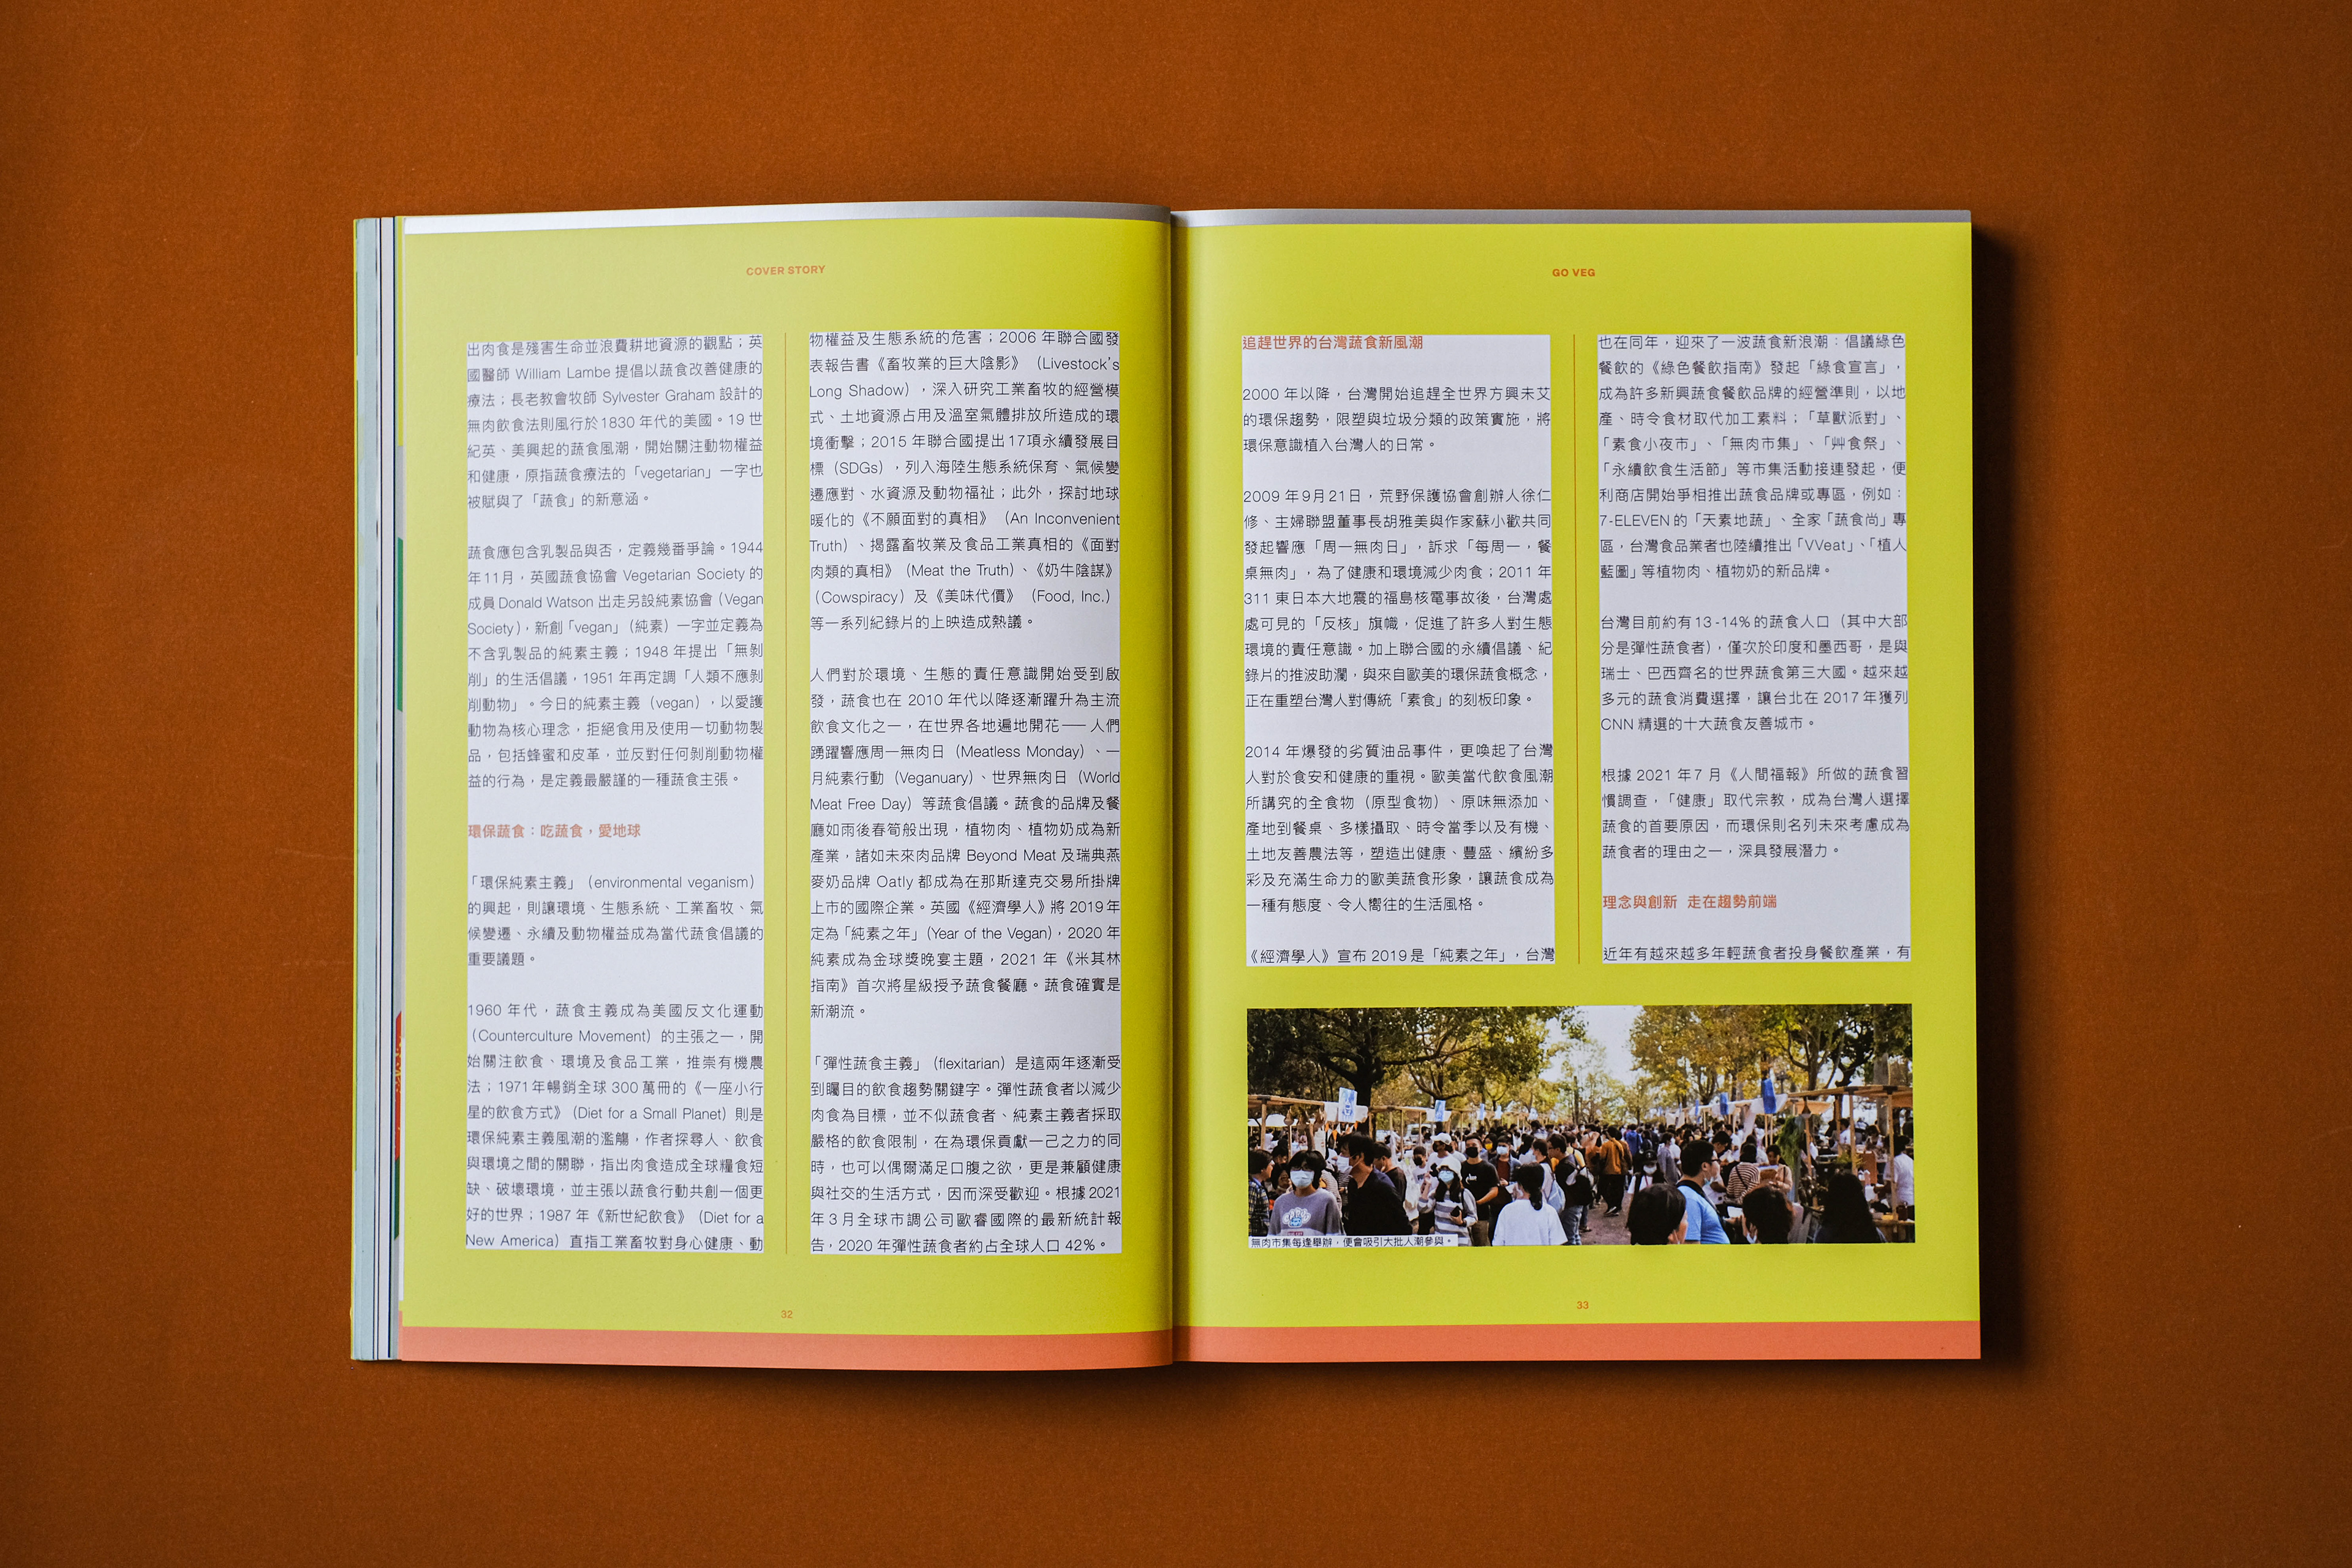 COVER STORY
出肉食是殘害生命並浪費耕地資源的觀點；英
國醫師 William Lambe 提倡以蔬食改善健康的
療法；長老教會牧師 Sylvester Graham 設計的
無肉飲食法則風行於 1830 年代的美國。19 世
紀英、美興起的蔬食風潮，開始關注動物權益
和健康，原指蔬食療法的「vegetarian」一字也
被賦與了「蔬食」的新意涵。
蔬食應包含乳製品與否，定義幾番爭論。1944
年11月，英國蔬食協會 Vegetarian Society 的
成員 Donald Watson 出走另設純素協會（Vegan
Society），新創「vegan」（純素）一字並定義為
不含乳製品的純素主義；1948 年提出「無剝
削」的生活倡議，1951 年再定調「人類不應剝
削動物」。今日的純素主義（vegan），以愛護
動物為核心理念，拒絕食用及使用一切動物製
品，包括蜂蜜和皮革，並反對任何剝削動物權
益的行為，是定義最嚴謹的一種蔬食主張。
環保蔬食：吃蔬食，愛地球
「環保純素主義」（environmental veganism）
的興起，則讓環境、生態系統、工業畜牧、氣
候變遷、永續及動物權益成為當代蔬食倡議的
重要議題。
1960 年代，蔬食主義成為美國反文化運動
（Counterculture Movement）的主張之一，開
始關注飲食、環境及食品工業，推崇有機農
法；1971年暢銷全球 300 萬冊的《一座小行
星的飲食方式》（Diet for a Small Planet）則是
環保純素主義風潮的濫觴，作者探尋人、飲食
與環境之間的關聯，指出肉食造成全球糧食短
缺、破壞環境，並主張以蔬食行動共創一個更
好的世界；1987 年《新世紀飲食》（Diet for a
New America）直指工業畜牧對身心健康、動
物權益及生態系統的危害；2006 年聯合國發
表報告書《畜牧業的巨大陰影》（Livestock's
Long Shadow），深入研究工業畜牧的經營模
式、土地資源占用及溫室氣體排放所造成的環
境衝擊；2015 年聯合國提出17項永續發展目
標（SDGs），列入海陸生態系統保育、氣候變
遷應對、水資源及動物福祉；此外，探討地球
暖化的《不願面對的真相》（An Inconvenient
Truth）、揭露畜牧業及食品工業真相的《面對
肉類的真相》（Meat the Truth）、《奶牛陰謀》
（Cowspiracy）及《美味代價》（Food, Inc.）
等一系列紀錄片的上映造成熱議。
人們對於環境、生態的責任意識開始受到啟
發，蔬食也在 2010 年代以降逐漸躍升為主流
飲食文化之一，在世界各地遍地開花—— 人們
踴躍響應周一無肉日（Meatless Monday）、一
月純素行動（Veganuary）、世界無肉日（World
Meat Free Day）等蔬食倡議。蔬食的品牌及餐
廳如雨後春筍般出現，植物肉、植物奶成為新
產業，諸如未來肉品牌 Beyond Meat 及瑞典燕
麥奶品牌 Oatly 都成為在那斯達克交易所掛牌
上市的國際企業。英國《經濟學人》將 2019 年
定為「純素之年」（Year of the Vegan），2020 年
純素成為金球獎晚宴主題，2021 年《米其林
指南》首次將星級授予蔬食餐廳。蔬食確實是
新潮流。
「彈性蔬食主義」（flexitarian）是這兩年逐漸受
到矚目的飲食趨勢關鍵字。彈性蔬食者以減少
肉食為目標，並不似蔬食者、純素主義者採取
嚴格的飲食限制，在為環保貢獻一己之力的同
時，也可以偶爾滿足口腹之欲，更是兼顧健康
與社交的生活方式，因而深受歡迎。根據2021
年 3 月全球市調公司歐睿國際的最新統計報
告，2020 年彈性蔬食者約占全球人口 42%。
32
GO VEG
追趕世界的台灣蔬食新風潮
2000 年以降，台灣開始追趕全世界方興未艾
的環保趨勢，限塑與垃圾分類的政策實施，將
環保意識植入台灣人的日常。
2009 年9月21日，荒野保護協會創辦人徐仁
修、主婦聯盟董事長胡雅美與作家蘇小歡共同
發起響應「周一無肉日」，訴求「每周一，餐
桌無肉」，為了健康和環境減少肉食；2011 年
311 東日本大地震的福島核電事故後，台灣處
處可見的「反核」旗幟，促進了許多人對生態
環境的責任意識。加上聯合國的永續倡議、紀
錄片的推波助瀾，與來自歐美的環保蔬食概念，
正在重塑台灣人對傳統「素食」的刻板印象。
2014 年爆發的劣質油品事件，更喚起了台灣
人對於食安和健康的重視。歐美當代飲食風潮
所講究的全食物（原型食物）、原味無添加、
產地到餐桌、多樣攝取、時令當季以及有機、
土地友善農法等，塑造出健康、豐盛、繽紛多
彩及充滿生命力的歐美蔬食形象，讓蔬食成為
一種有態度、令人嚮往的生活風格。
《經濟學人》宣布 2019 是「純素之年」，台灣
也在同年，迎來了一波蔬食新浪潮：倡議綠色
餐飲的《綠色餐飲指南》發起「綠食宣言」，
成為許多新興蔬食餐飲品牌的經營準則，以地
產、時令食材取代加工素料；「草獸派對」、
「素食小夜市」、「無肉市集」、「艸食祭」、
「永續飲食生活節」等市集活動接連發起，便
利商店開始爭相推出蔬食品牌或專區，例如：
7-ELEVEN 的「天素地蔬」、全家「蔬食尚」專
區，台灣食品業者也陸續推出「VVeat」、「植人
藍圖」等植物肉、植物奶的新品牌。
台灣目前約有 13-14% 的蔬食人口（其中大部
分是彈性蔬食者），僅次於印度和墨西哥，是與
瑞士、巴西齊名的世界蔬食第三大國。越來越
多元的蔬食消費選擇，讓台北在 2017 年獲列
CNN 精選的十大蔬食友善城市。
根據 2021 年 7 月《人間福報》所做的蔬食習
慣調查，「健康」取代宗教，成為台灣人選擇
蔬食的首要原因，而環保則名列未來考慮成為
蔬食者的理由之一，深具發展潛力。
理念與創新 走在趨勢前端
近年有越來越多年輕蔬食者投身餐飲產業，有
無肉市集每逢舉辦，便會吸引大批人潮參與。
33